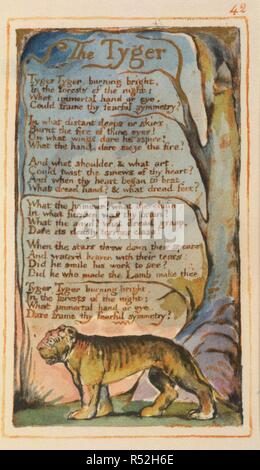 42
The Tyger
Tyger Tyger, burning bright,
In the forests of the night;
What immortal hand or eye,
Could frame thy fearful symmetry?
In what distant deeps or skies.
Burnt the fire of thine eyes?
On what wings dare he aspire?
What the hand, dare sieze the fire?
And what shoulder, & what art,
Could twist the sinews of thy heart?
And when thy heart began to beat,
What dread hand? & what dread feet?
What the hammer? what the chain,
In what furnace was thy brain?
What the anvil? what dread grasp,
Dare its deadly terrors clasp?
When the stars threw down their spears
And water'd heaven with their tears:
Did he smile his work to see?
Did he who made the Lamb make thee?
Tyger Tyger burning bright,
In the forests of the night:
What immortal hand or eye,
Dare frame thy fearful symmetry?
R52H6E